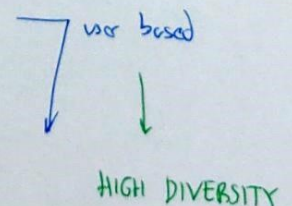 user based
HIGH DIVERSITY